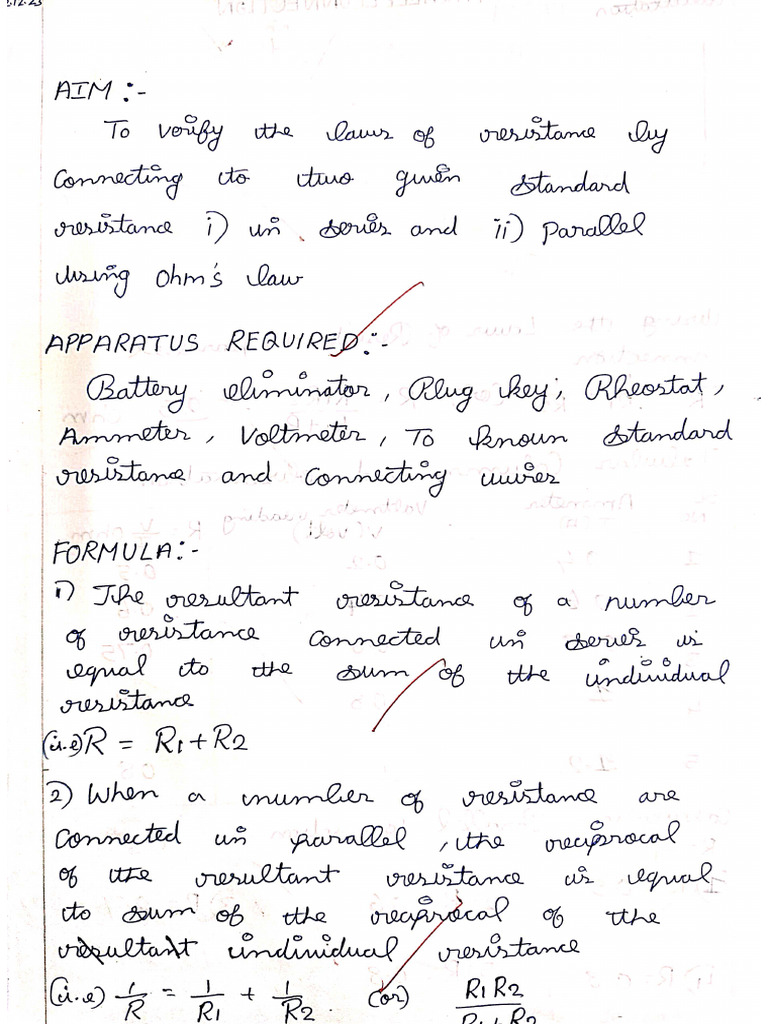 AIM :-
To verify the laws of resistance by
connecting to two given standard
resistance i) in series and ii) parallel
using Ohm's law
APPARATUS REQUIRED:-
Battery eliminator, Plug key, Rheostat,
Ammeter, Voltmeter, To known standard
resistance and connecting wires
FORMULA:-
1) The resultant resistance of a number
of resistance connected in series is
equal to the sum of the individual
resistance
(i.e) R = R1 + R2
2) When a number of resistance are
connected in parallel, the reciprocal
of the resultant resistance is equal
to sum of the reciprocal of the
resultant individual resistance
(i.e) 1/R = 1/R1 + 1/R2 (or) R1 R2 / R1 + R2